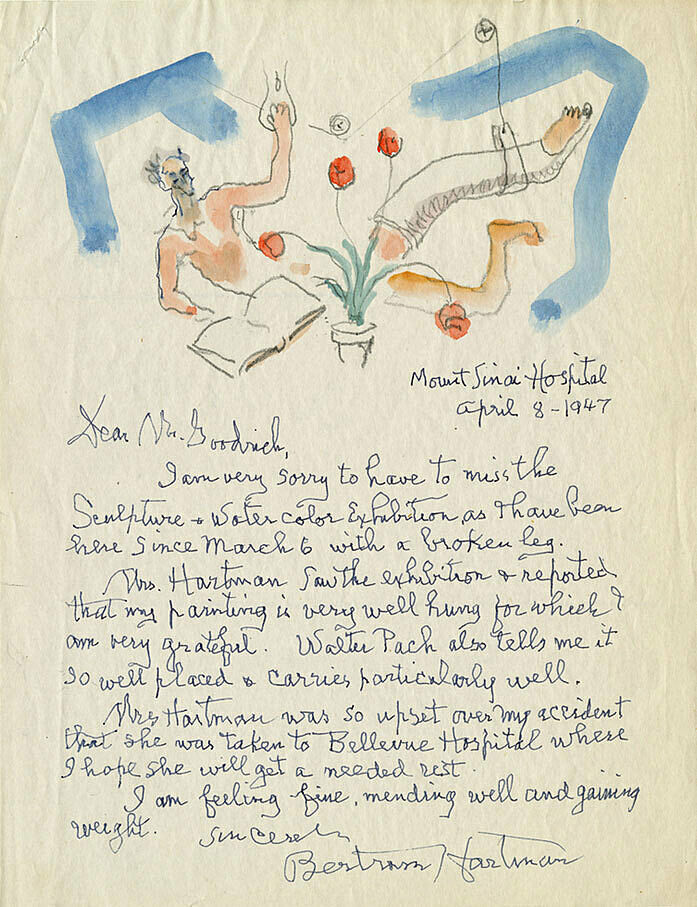 Mount Sinai Hospital
April 8-1947
Dear Mr. Goodrich,
I am very sorry to have to miss the
Sculpture & Water color Exhibition as I have been
here since March 6 with a broken leg.
Mrs. Hartman saw the exhibition & reported
that my painting is very well hung for which I
am very grateful. Walter Pach also tells me it
so well placed & carries particularly well.
Mrs Hartman was so upset over my accident
that she was taken to Bellevue Hospital where
I hope she will get a needed rest.
I am feeling fine, mending well and gaining
weight.
Sincerely
Bertram Hartman